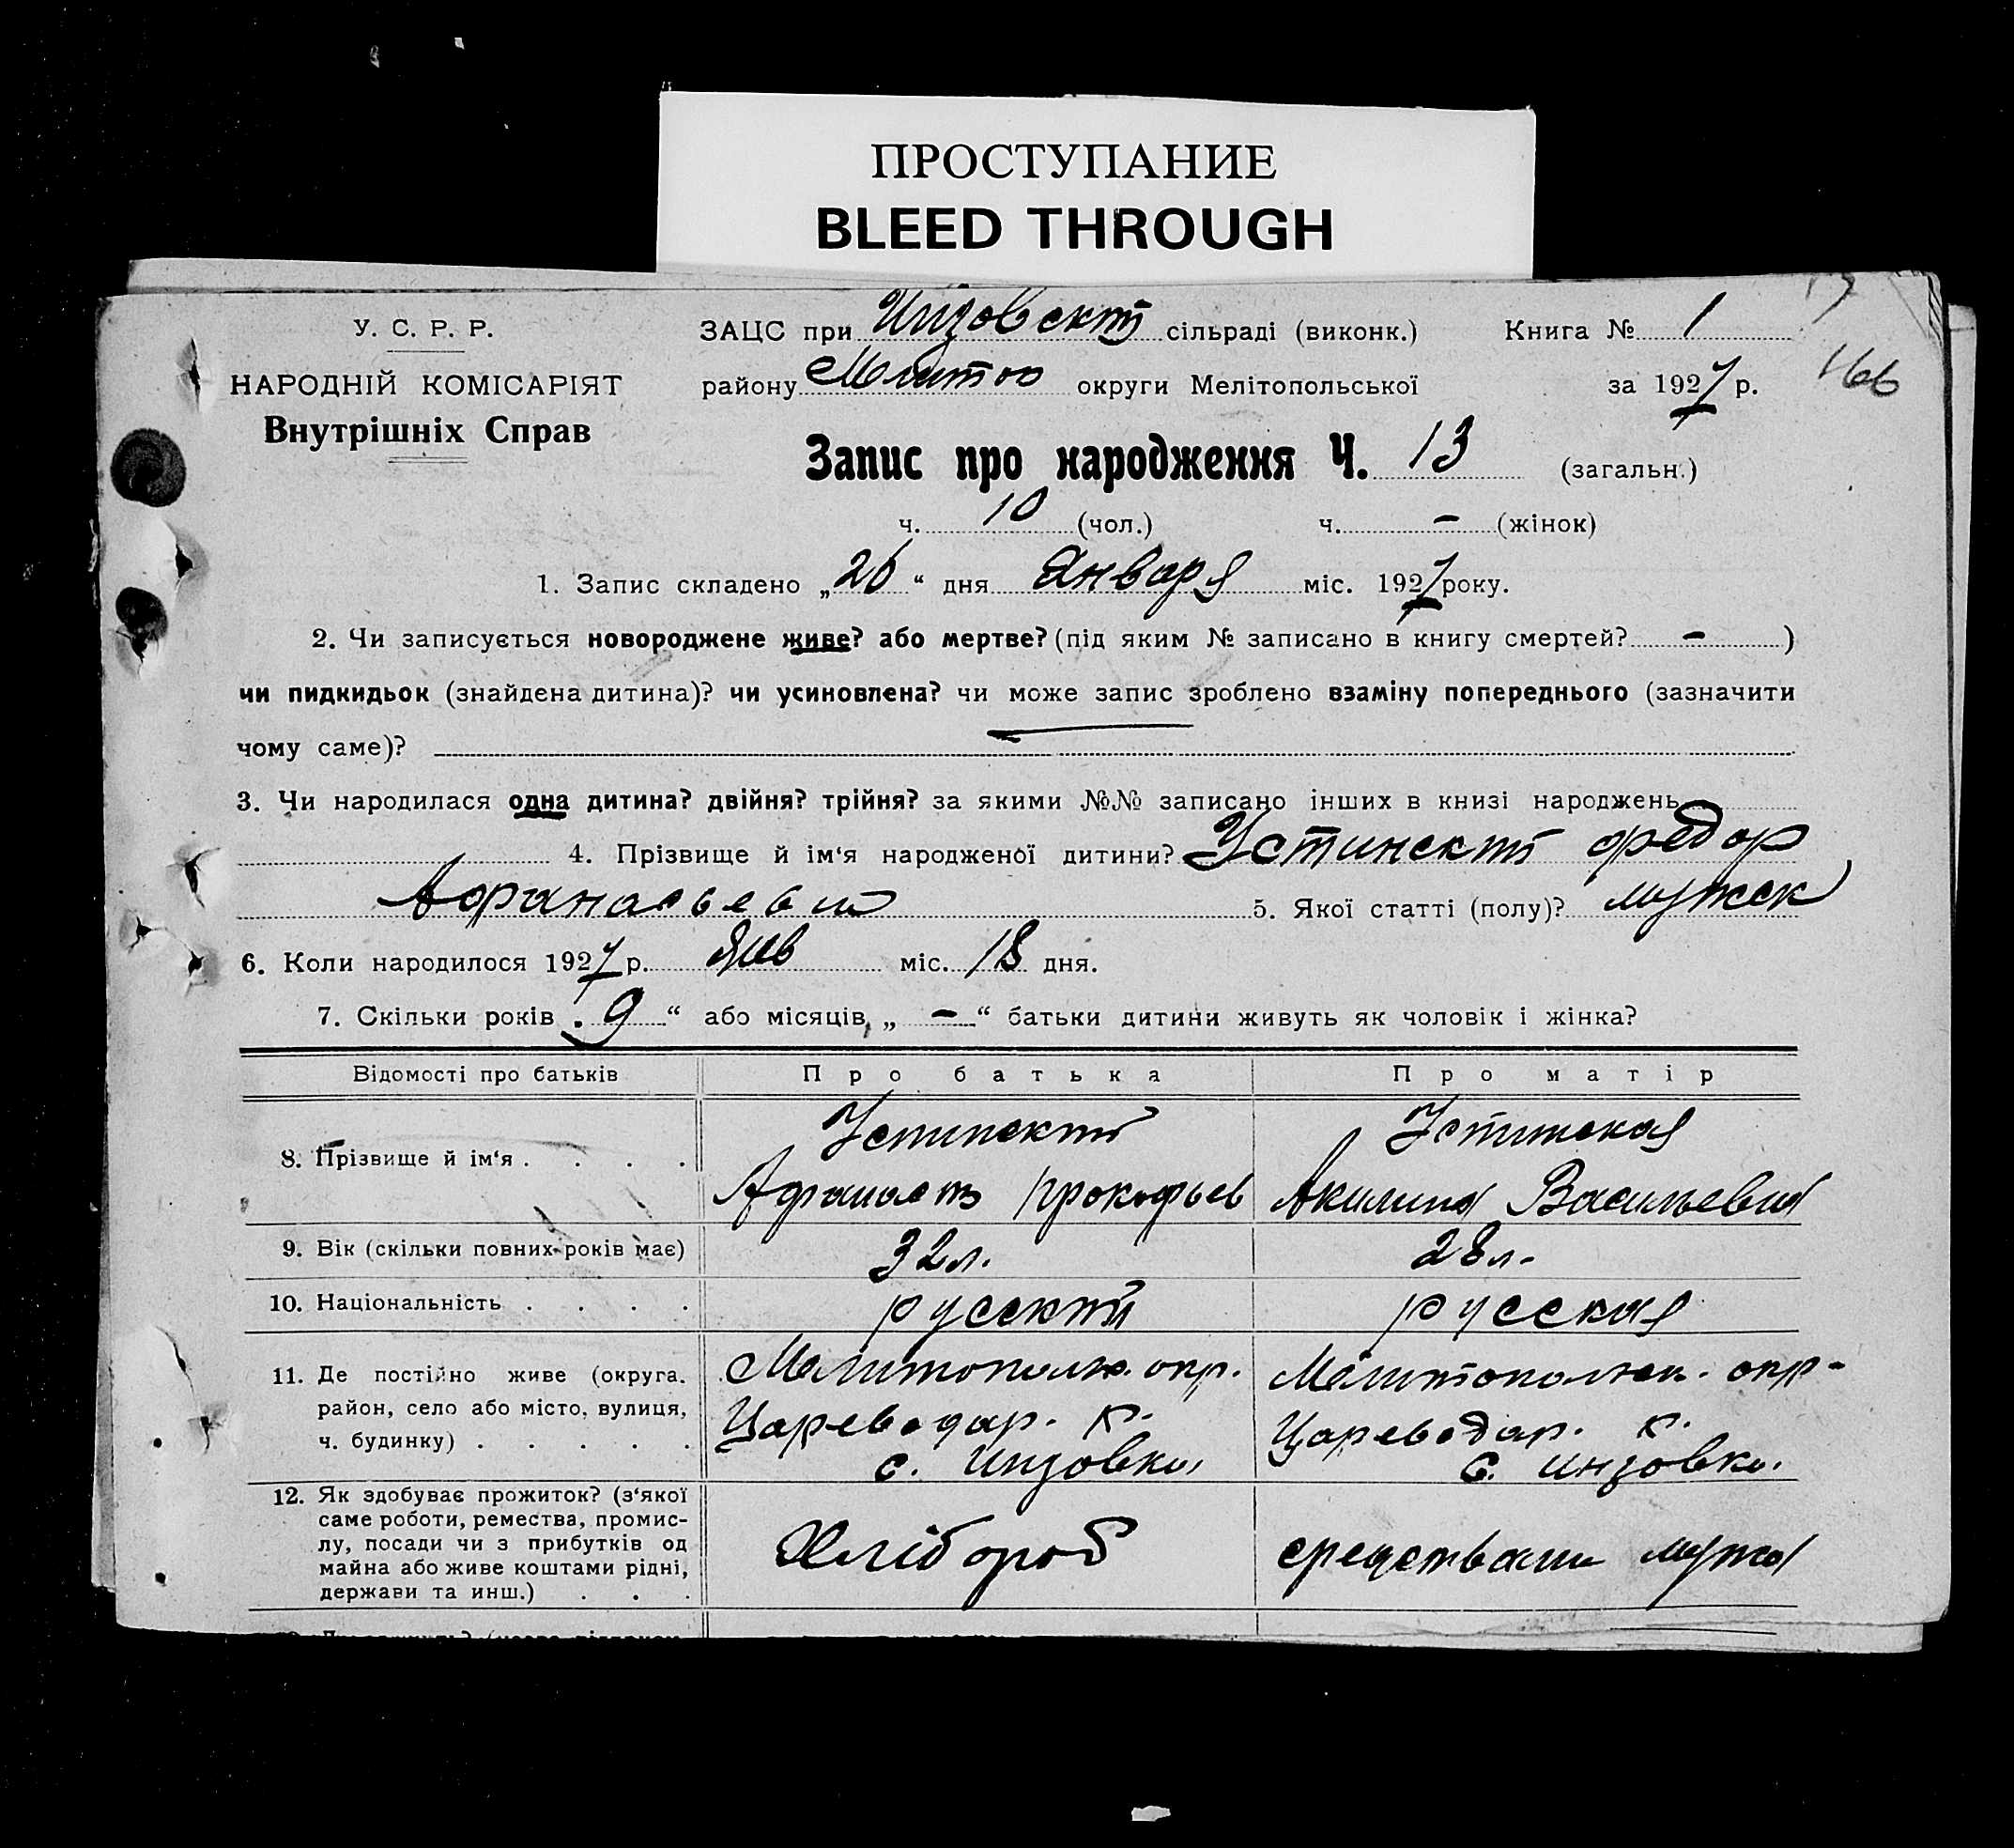 ПРОСТУПАНИЕ
BLEED THROUGH
У. С. Р. Р.
НАРОДНІЙ КОМІСАРІЯТ
Внутрішніх Справ
ЗАЦС при Инзовскій сільраді (виконк.) Книга № 1
району Мелитоп округи Мелітопольської за 1927 р.
166
Запис про народження Ч. 13 (загальн.)
ч. 10 (чол.) ч. – (жінок)
1. Запис складено „26“ дня Января міс. 1927 року.
2. Чи записується новороджене живе? або мертве? (під яким № записано в книгу смертей? – )
чи пидкидьок (знайдена дитина)? чи усиновлена? чи може запис зроблено взаміну попереднього (зазначити
чому саме)?
3. Чи народилася одна дитина? двійня? трійня? за якими №№ записано інших в книзі народжень
4. Прізвище й ім‘я народженої дитини? Устинский Федор
Афанасьевич 5. Якої статті (полу)? мужск
6. Коли народилося 1927 р. Янв міс. 18 дня.
7. Скільки років „ 9 “ або місяців „ – “ батьки дитини живуть як чоловік і жінка?
Відомості про батьків Про батька Про матір
8. Прізвище й ім‘я . . . . Устинский Афанасий Прокофьев Устинская Акилина Васильевна
9. Вік (скільки повних років має) 32 л. 28 л.
10. Національність . . . . русский русская
11. Де постійно живе (округа. Мелитопольск. окр. Мелитопольск. окр-
район, село або місто, вулиця, Цареводар. р. Цареводар. р.
ч. будинку) . . . . . с. Инзовка, с. Инзовка.
12. Як здобуває прожиток? (з‘якої
саме роботи, ремества, промис-
лу, посади чи з прибутків од Хлібороб средствами мужа
майна або живе коштами рідні,
держави та инш.) . . .